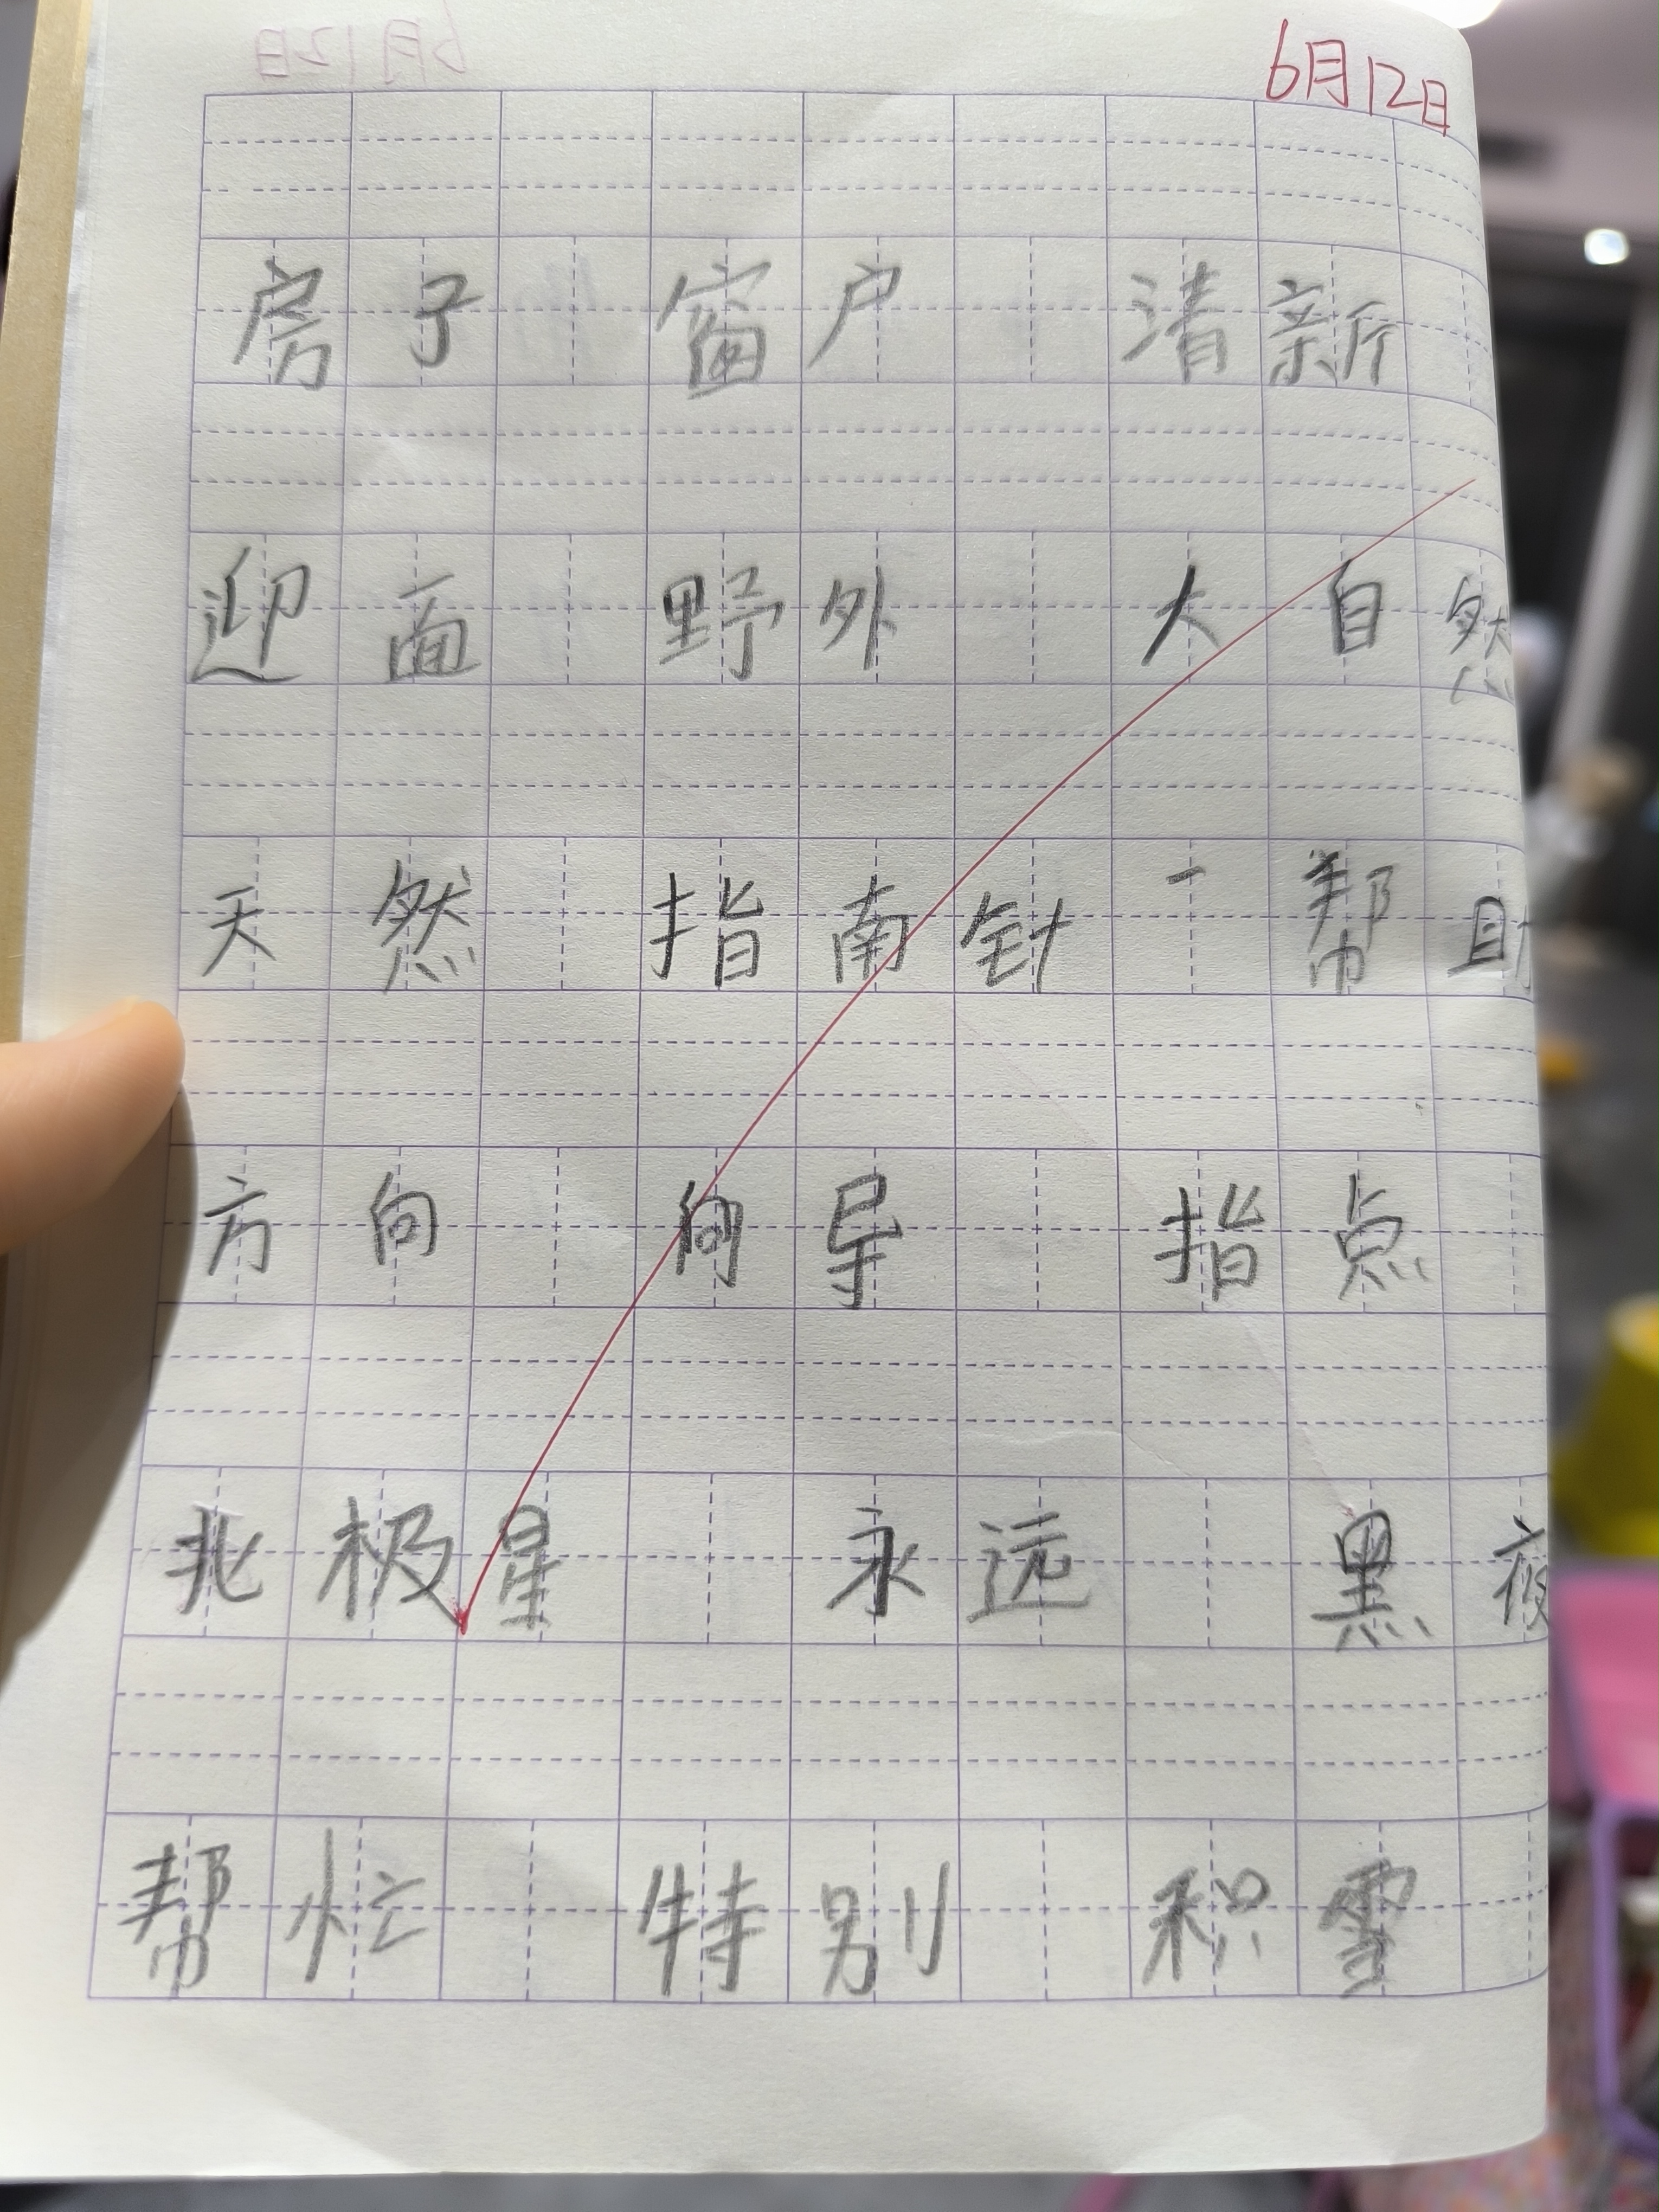 6月12日
房子 窗户 清新
迎面 野外 大自然
天然 指南针 帮助
方向 向导 指点
北极星 永远 黑夜
帮忙 特别 积雪